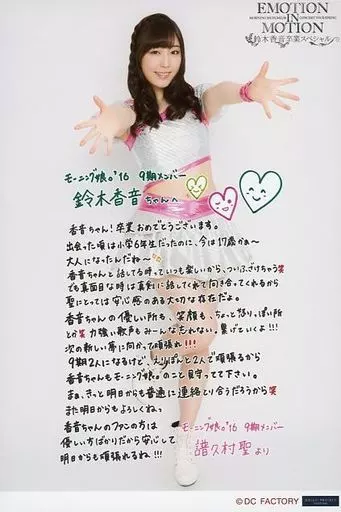 EMOTION
IN
MOTION
鈴木香音卒業スペシャル
モーニング娘。'16 9期メンバー
鈴木香音ちゃんへ
香音ちゃん!卒業おめでとうございます。
出会った頃は小学6年生だったのに、今は17歳かぁ〜
大人になったんだね〜
香音ちゃんと話してる時っていつも楽しいから、ついふざけちゃう笑
でも真面目な時は真剣に話してくれて向き合ってくれるから
聖にとっては安心感のある大切な存在だよ。
香音ちゃんの優しい所も、笑顔も、ちょっと怒りっぽい所
とか笑 力強い歌声もみーんな忘れない。繋げていくよ!!!
次の新しい夢に向かって頑張れ!!!
9期2人になるけど、えりぽんと2人で頑張るから
香音ちゃんもモーニング娘。のこと見守ってて下さい。
まぁ、きっと明日からも普通に連絡とり合うだろうから笑
また明日からもよろしくねっ
香音ちゃんのファンの方は
優しい方ばかりだから安心して
明日からも頑張れるね!!!
モーニング娘。'16 9期メンバー
譜久村聖より
©DC FACTORY